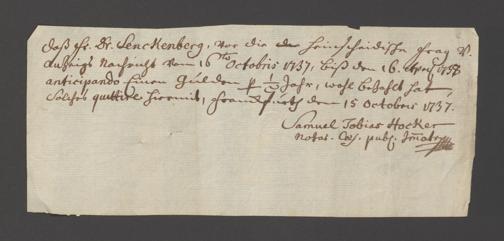 daß Hr. Dr. Senckenberg, vor die Frag v.
Nachricht vom 16ten Octobris 1737. biß den 16. 1738
anticipando Einen Gulden p 1/2 Jahr, wohl bezahlt hat,
Solches quittire hiermit, Franckfurth den 15 Octobris 1737.
Samuel Tobias Hocker
Notar. Cæs. publ. Immatr.